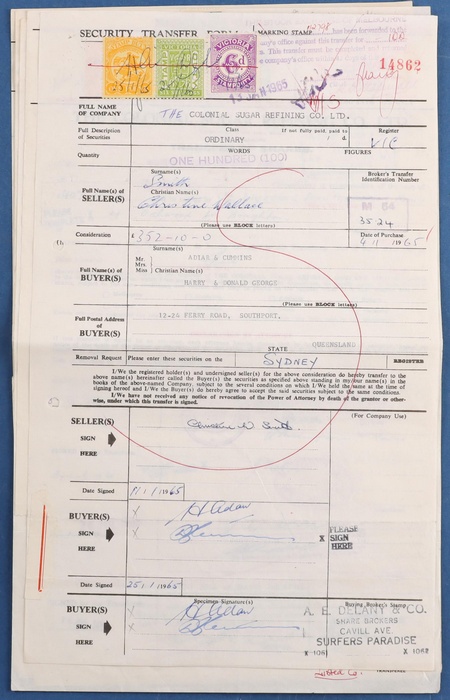 SECURITY TRANSFER FORM
MARKING STAMP
has been forwarded to
company's office against this transfer for
This transfer must be
company's office
14862
VICTORIA
6d
13 JAN 1965
FULL NAME
OF COMPANY
THE COLONIAL SUGAR REFINING CO. LTD.
Full Description
of Securities
Class
ORDINARY
If not fully paid, paid to
d.
Register
VIC
Quantity
WORDS
ONE HUNDRED (100)
FIGURES
Full Name(s) of
SELLER(S)
Surname(s)
Smith
Christian Name(s)
Christine Wallace
(Please use BLOCK letters)
Broker's Transfer
Identification Number
M 54
3524
Consideration
£352-10-0
Date of Purchase
4/1/1965
Full Name(s) of
BUYER(S)
Mr.
Mrs.
Miss
Surname(s)
ADIAS & CUMMINS
Christian Name(s)
HARRY & DONALD GEORGE
(Please use BLOCK letters)
Full Postal Address
of
BUYER(S)
12-26 FERRY ROAD, SOUTHPORT.
STATE
QUEENSLAND
Removal Request
Please enter these securities on the
SYDNEY
REGISTER
I/We the registered holder(s) and undersigned seller(s) for the above consideration do hereby transfer to the
above name(s) hereinafter called the Buyer(s) the securities as specified above standing in my/our name(s) in the
books of the above-named Company, subject to the several conditions on which I/We held the same at the time of
signing hereof and I/We the Buyer(s) do hereby agree to accept the said securities subject to the same conditions.
I/We have not received any notice of revocation of the Power of Attorney by death of the grantor or other-
wise, under which this transfer is signed.
SELLER(S)
SIGN
HERE
Christine W. Smith
(For Company Use)
Date Signed
/1/1965
BUYER(S)
SIGN
HERE
X
X
X
PLEASE
SIGN
HERE
Date Signed
25/1/1965
BUYER(S)
SIGN
HERE
Specimen Signature(s)
X
X
Buying Broker's Stamp
A. E. DELANY & CO.
SHARE BROKERS
CAVILL AVE.
SURFERS PARADISE
X 1061
X 1062